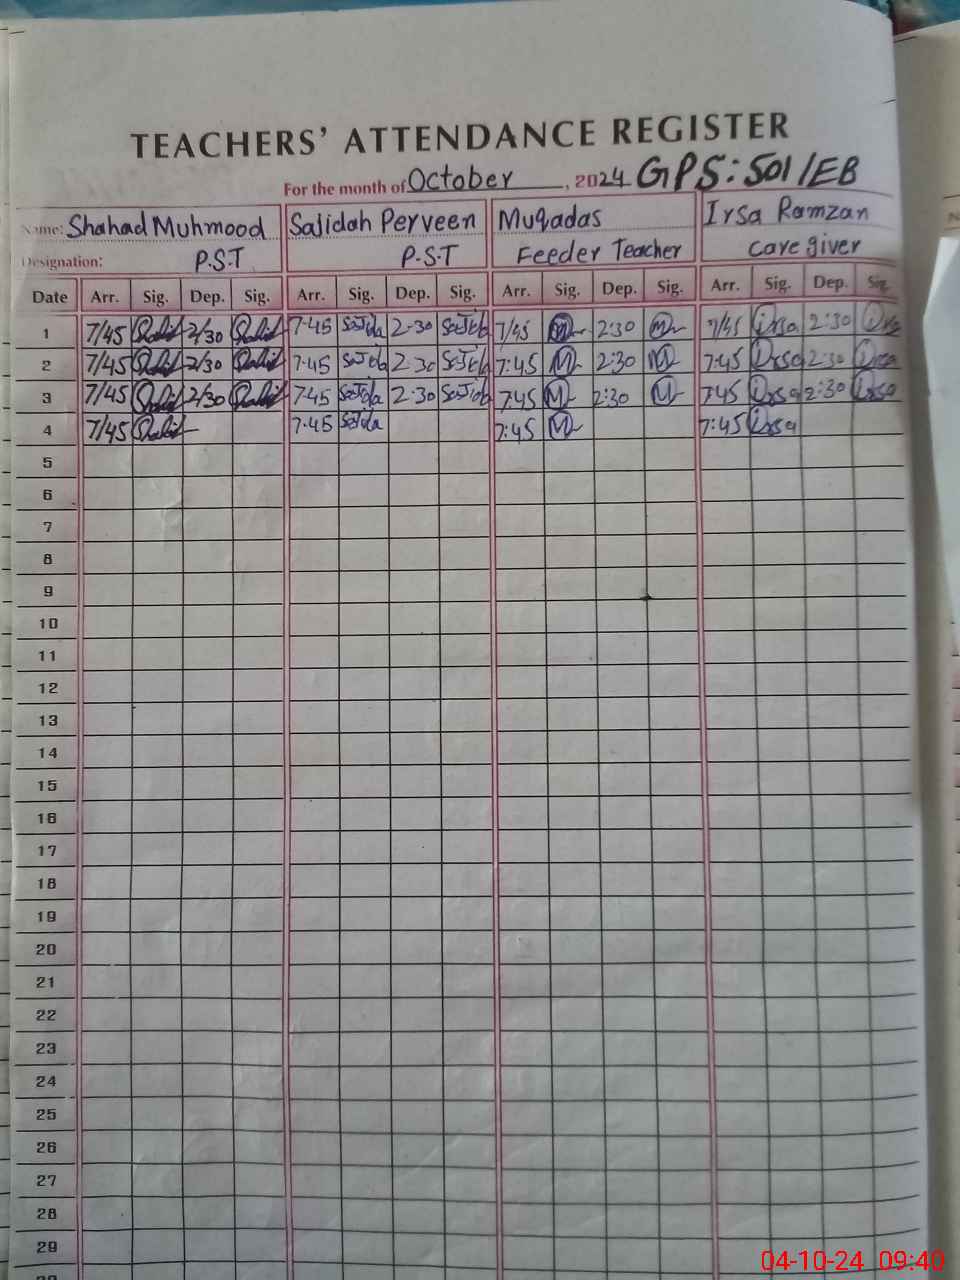 TEACHERS' ATTENDANCE REGISTER
For the month of October, 2024 GPS: 501/EB
Name: Shahad Muhmood Sajidah Perveen Muqadas Irsa Ramzan
Designation: P.S.T P.S.T Feeder Teacher Care giver
Date Arr. Sig. Dep. Sig. Arr. Sig. Dep. Sig. Arr. Sig. Dep. Sig. Arr. Sig. Dep. Sig.
1 7/45 2/30 7-45 Sajida 2-30 7/45 M 2:30 M 7/45 Irsa 2:30 Irsa
2 7/45 2/30 7-45 2-30 7:45 M 2:30 M 7:45 Irsa 2:30 Irsa
3 7/45 2/30 7-45 Sajida 2-30 7:45 M 2:30 M 7:45 Irsa 2:30 Irsa
4 7/45 7-45 Sajida 7:45 M 7:45 Irsa
5
6
7
8
9
10
11
12
13
14
15
16
17
18
19
20
21
22
23
24
25
26
27
28
29
04-10-24 09:40